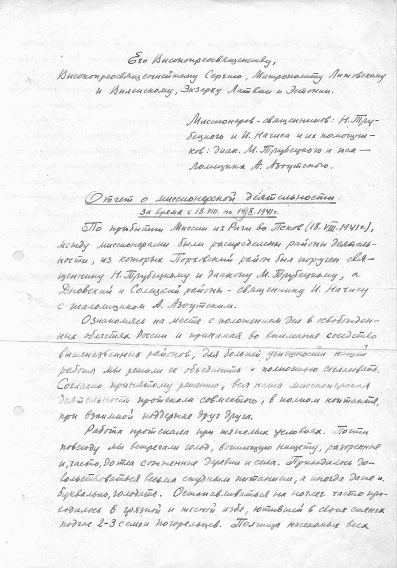 Его Высокопреосвященству,
Высокопреосвященнейшему Сергию, Митрополиту Литовскому
и Виленскому, Экзарху Латвии и Эстонии.
Миссионеров-священников: Н. Тру-
бецкого и И. Начиса и их помощни-
ков: диак. М. Трубецкого и пса-
ломщика А.
Отчет о миссионерской деятельности
за время с 18.VIII. по 1941г.
По прибытии Миссии из Риги во Псков (18.VIII.1941г.),
между миссионерами были распределены районы деятель-
ности, из которых Порховский район был поручен свя-
щеннику Н. Трубецкому и диакону М. Трубецкому, а
Дновский и Солецкий районы - священнику И. Начису
с псаломщиком А.
Ознакомясь на месте с положением дел в освобожден-
ных областях России и принимая во внимание соседство
вышеназванных районов, для большей успешности нашей
работы мы решили ее объединить и полностью согласовать.
Согласно принятому решению, вся наша миссионерская
деятельность протекала совместно, в полном контакте,
при взаимной поддержке друг друга.
Работа протекала при тяжелых условиях. Почти
повсюду мы встречали голод, вопиющую нищету, разоренные
и, часто, дотла сожженные деревни и села. Приходилось до-
вольствоваться весьма скудным питанием, а иногда даже и,
буквально, голодать. Останавливаться на ночлег часто при-
ходилось в грязной и тесной избе, ютившей в своих стенах
подчас 2-3 семьи погорельцев. Полчища насекомых всех